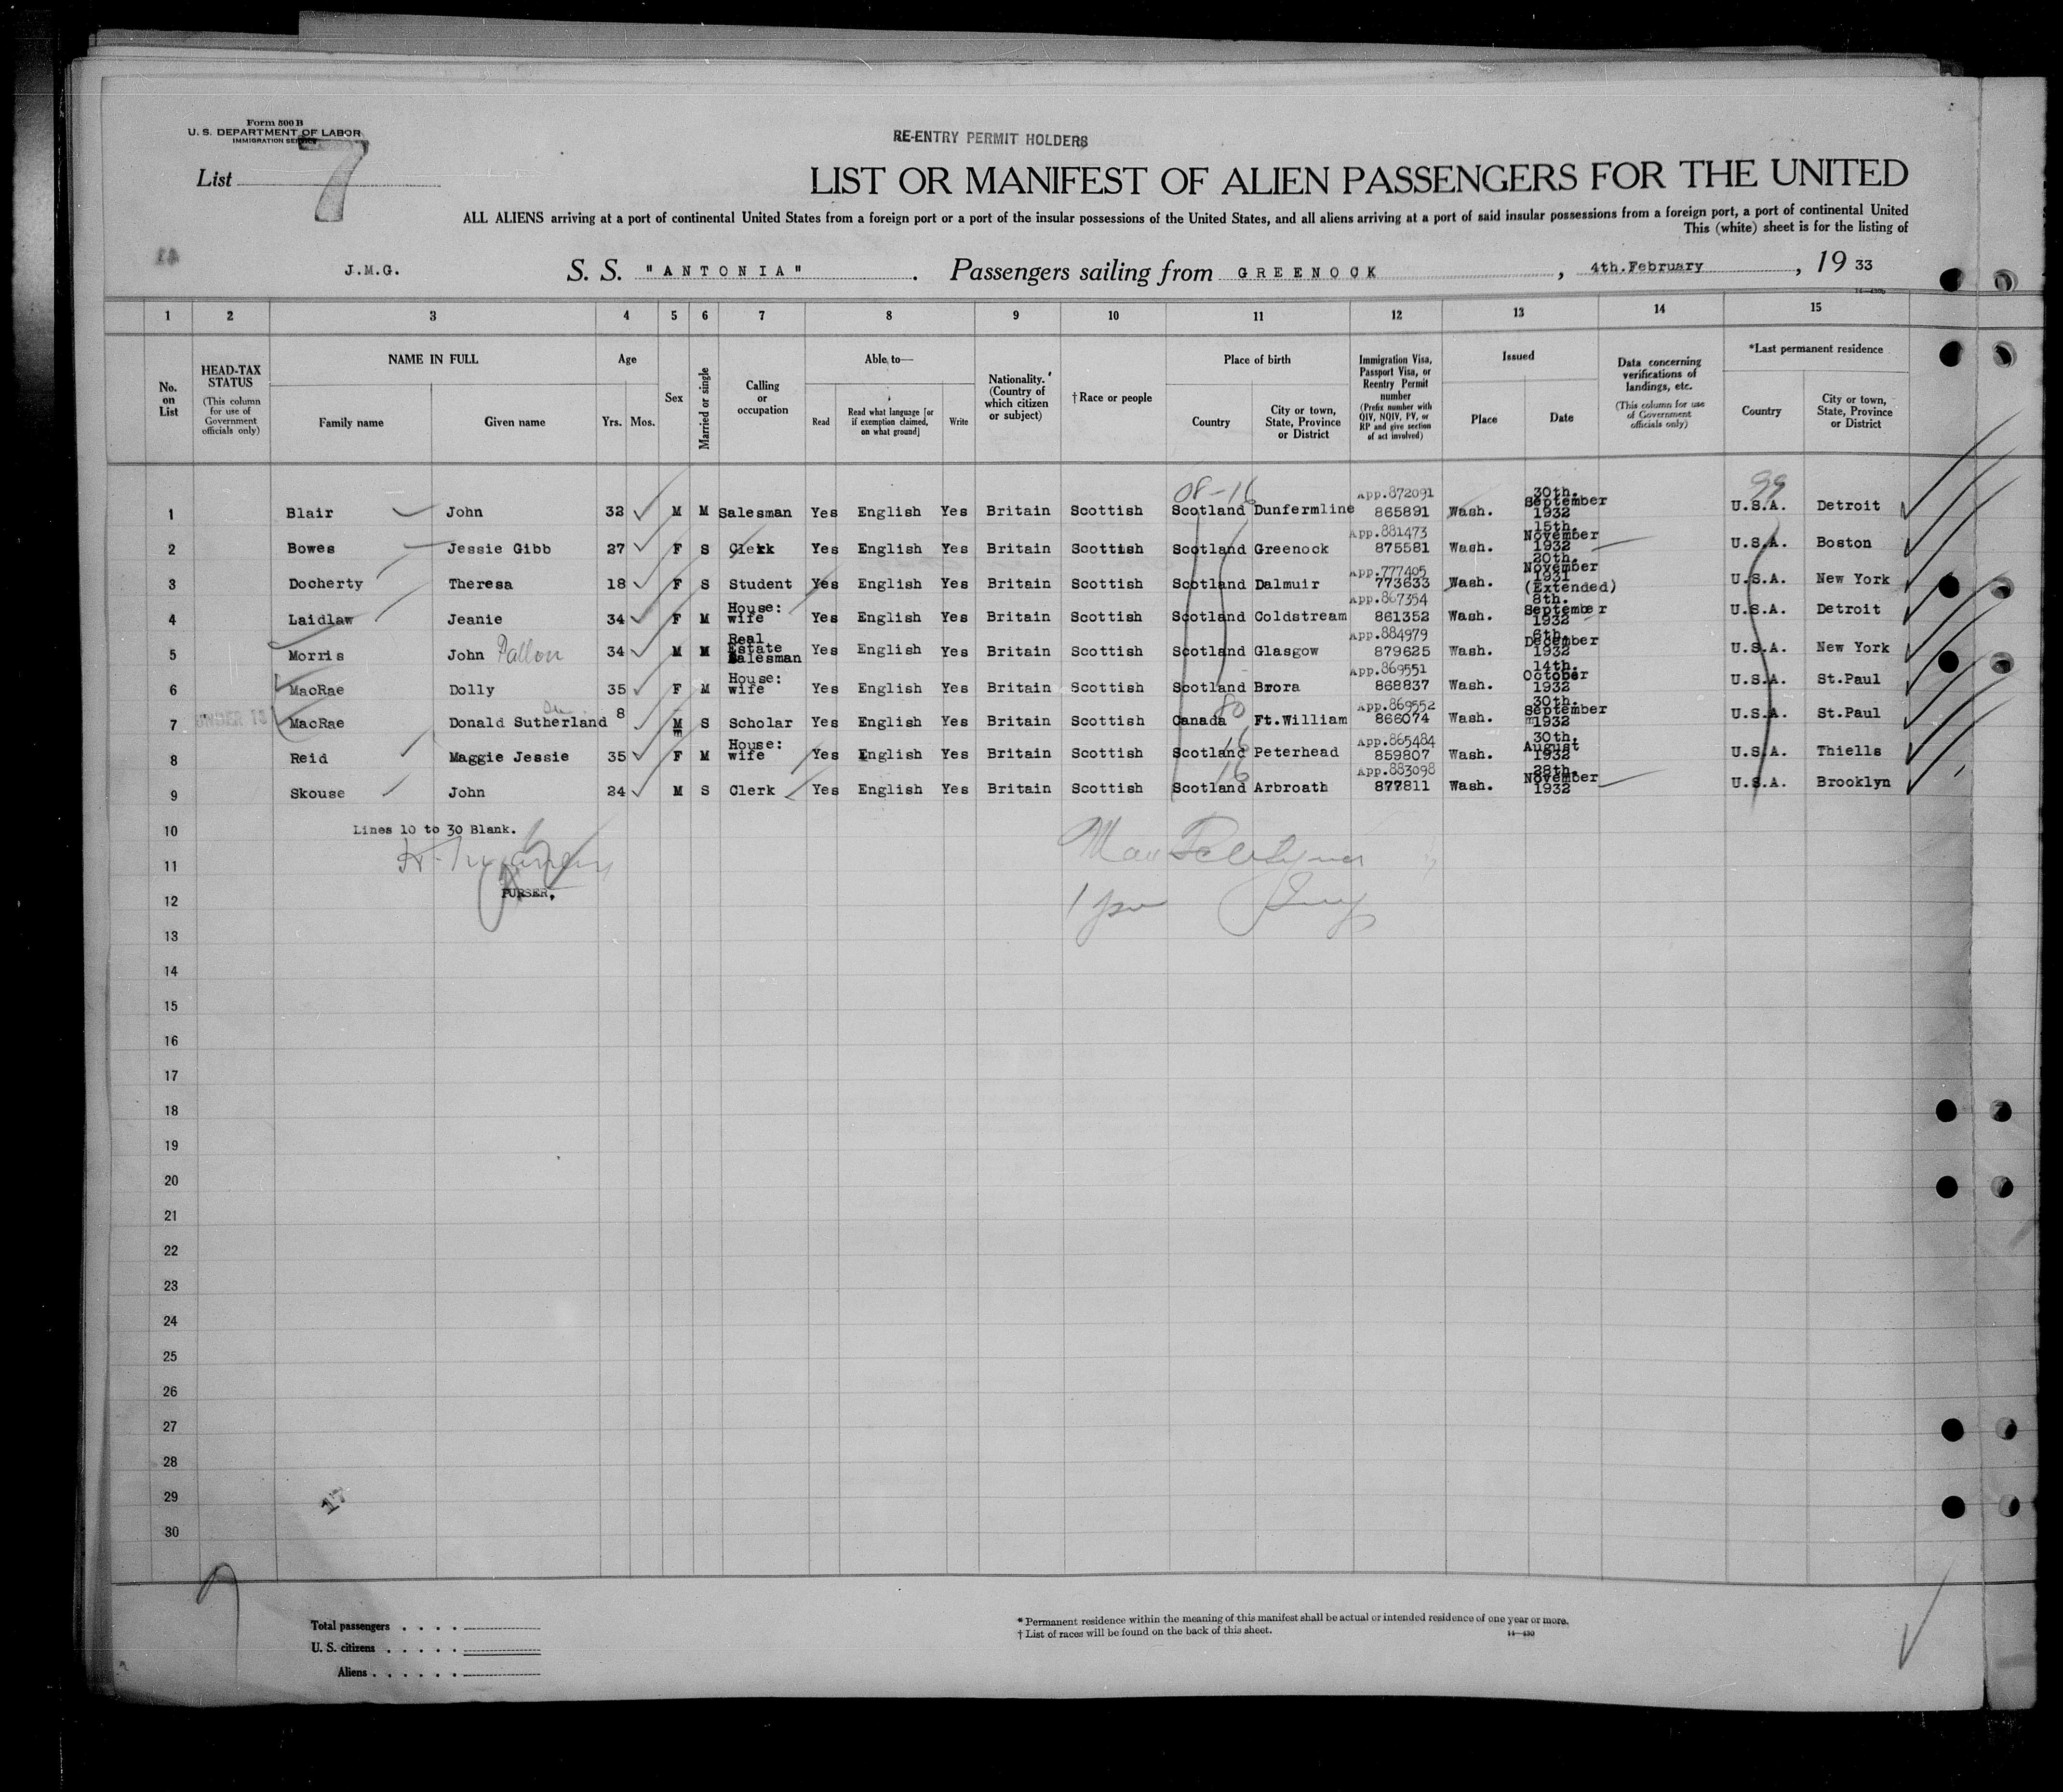 Form 500 B
U. S. DEPARTMENT OF LABOR
IMMIGRATION SERVICE
RE-ENTRY PERMIT HOLDERS
List 7
LIST OR MANIFEST OF ALIEN PASSENGERS FOR THE UNITED
ALL ALIENS arriving at a port of continental United States from a foreign port or a port of the insular possessions of the United States, and all aliens arriving at a port of said insular possessions from a foreign port, a port of continental United
This (white) sheet is for the listing of
J.M.G. S. S. "ANTONIA" . Passengers sailing from GREENOCK , 4th.February , 19 33
1 2 3 4 5 6 7 8 9 10 11 12 13 14 15
No. on List
HEAD-TAX STATUS (This column for use of Government officials only)
NAME IN FULL Family name Given name
Age Yrs. Mos.
Sex
Married or single
Calling or occupation
Able to— Read Read what language [or if exemption claimed, on what ground] Write
Nationality. (Country of which citizen or subject)
† Race or people
Place of birth Country City or town, State, Province or District
Immigration Visa, Passport Visa, or Reentry Permit number (Prefix number with QIV, NQIV, PV, or RP and give section of act involved)
Issued Place Date
Data concerning verifications of landings, etc. (This column for use of Government officials only)
*Last permanent residence Country City or town, State, Province or District
08-16 99
1 Blair John 32 M M Salesman Yes English Yes Britain Scottish Scotland Dunfermline App.872091 865891 Wash. 30th. September 1932 U.S.A. Detroit
2 Bowes Jessie Gibb 27 F S Clerk Yes English Yes Britain Scottish Scotland Greenock App.881473 875581 Wash. 15th. November 1932 U.S.A. Boston
3 Docherty Theresa 18 F S Student Yes English Yes Britain Scottish Scotland Dalmuir App.777405 773633 Wash. 20th. November 1931 (Extended) U.S.A. New York
4 Laidlaw Jeanie 34 F M House: wife Yes English Yes Britain Scottish Scotland Coldstream App.867354 861352 Wash. 8th. September 1932 U.S.A. Detroit
5 Morris John 34 M M Real Estate Salesman Yes English Yes Britain Scottish Scotland Glasgow App.884979 879625 Wash. 6th. December 1932 U.S.A. New York
6 MacRae Dolly 35 F M House: wife Yes English Yes Britain Scottish Scotland Brora App.869551 868837 Wash. 14th. October 1932 U.S.A. St.Paul
7 UNDER 16 MacRae Donald Sutherland 8 M S Scholar Yes English Yes Britain Scottish Canada 80 Ft.William App.869552 866074 Wash. 30th. September 1932 U.S.A. St.Paul
8 Reid Maggie Jessie 35 F M House: wife Yes English Yes Britain Scottish Scotland 16 Peterhead App.865484 859807 Wash. 30th. August 1932 U.S.A. Thiells
9 Skouse John 24 M S Clerk Yes English Yes Britain Scottish Scotland 16 Arbroath App.883098 877811 Wash. 28th. November 1932 U.S.A. Brooklyn
10 Lines 10 to 30 Blank.
11
12 PURSER.
13
14
15
16
17
18
19
20
21
22
23
24
25
26
27
28
29 17
30
Total passengers . . . .
U. S. citizens . . . . .
Aliens . . . . . .
* Permanent residence within the meaning of this manifest shall be actual or intended residence of one year or more.
† List of races will be found on the back of this sheet.
14—430